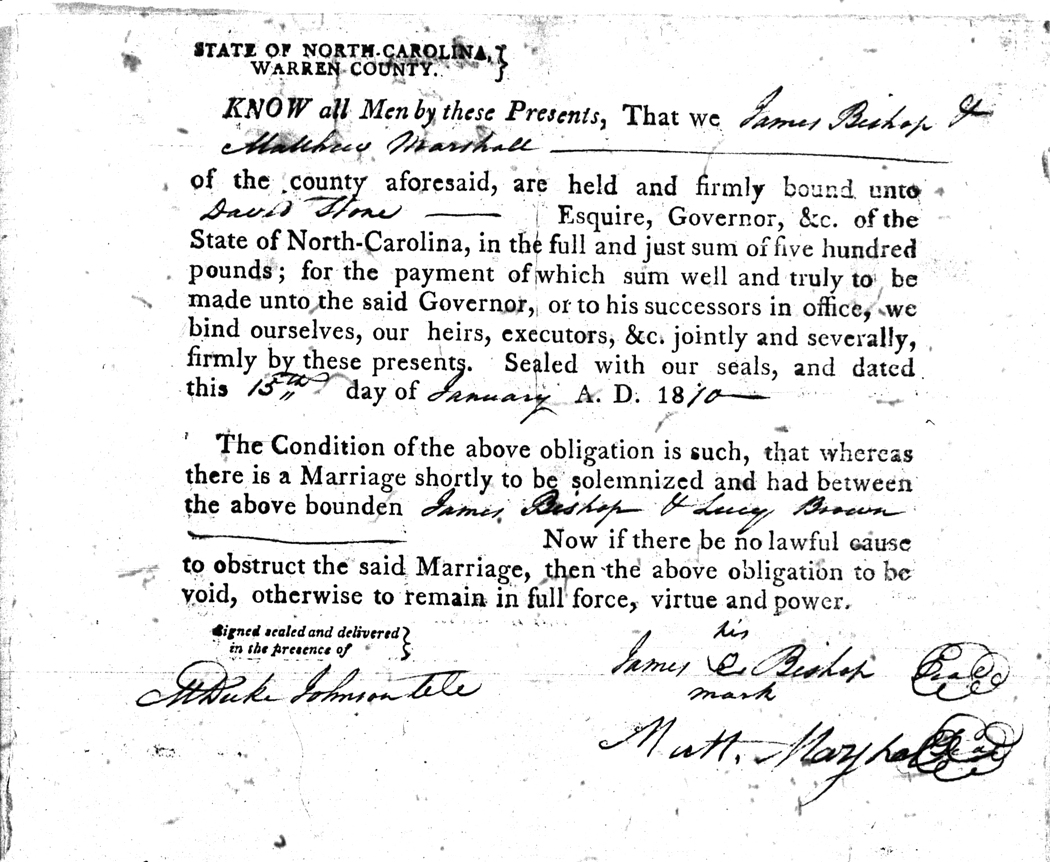 STATE OF NORTH-CAROLINA,
WARREN COUNTY.
KNOW all Men by these Presents, That we James Bishop &
Matthew Marshall
of the county aforesaid, are held and firmly bound unto
David Stone Esquire, Governor, &c. of the
State of North-Carolina, in the full and just sum of five hundred
pounds; for the payment of which sum well and truly to be
made unto the said Governor, or to his successors in office, we
bind ourselves, our heirs, executors, &c. jointly and severally,
firmly by these presents. Sealed with our seals, and dated
this 15th day of January A. D. 1810
The Condition of the above obligation is such, that whereas
there is a Marriage shortly to be solemnized and had between
the above bounden James Bishop & Lucy Brown
Now if there be no lawful cause
to obstruct the said Marriage, then the above obligation to be
void, otherwise to remain in full force, virtue and power.
Signed sealed and delivered
in the presence of
his
James Bishop Seal
mark
M Duke Johnson
Matt. Marshall Seal